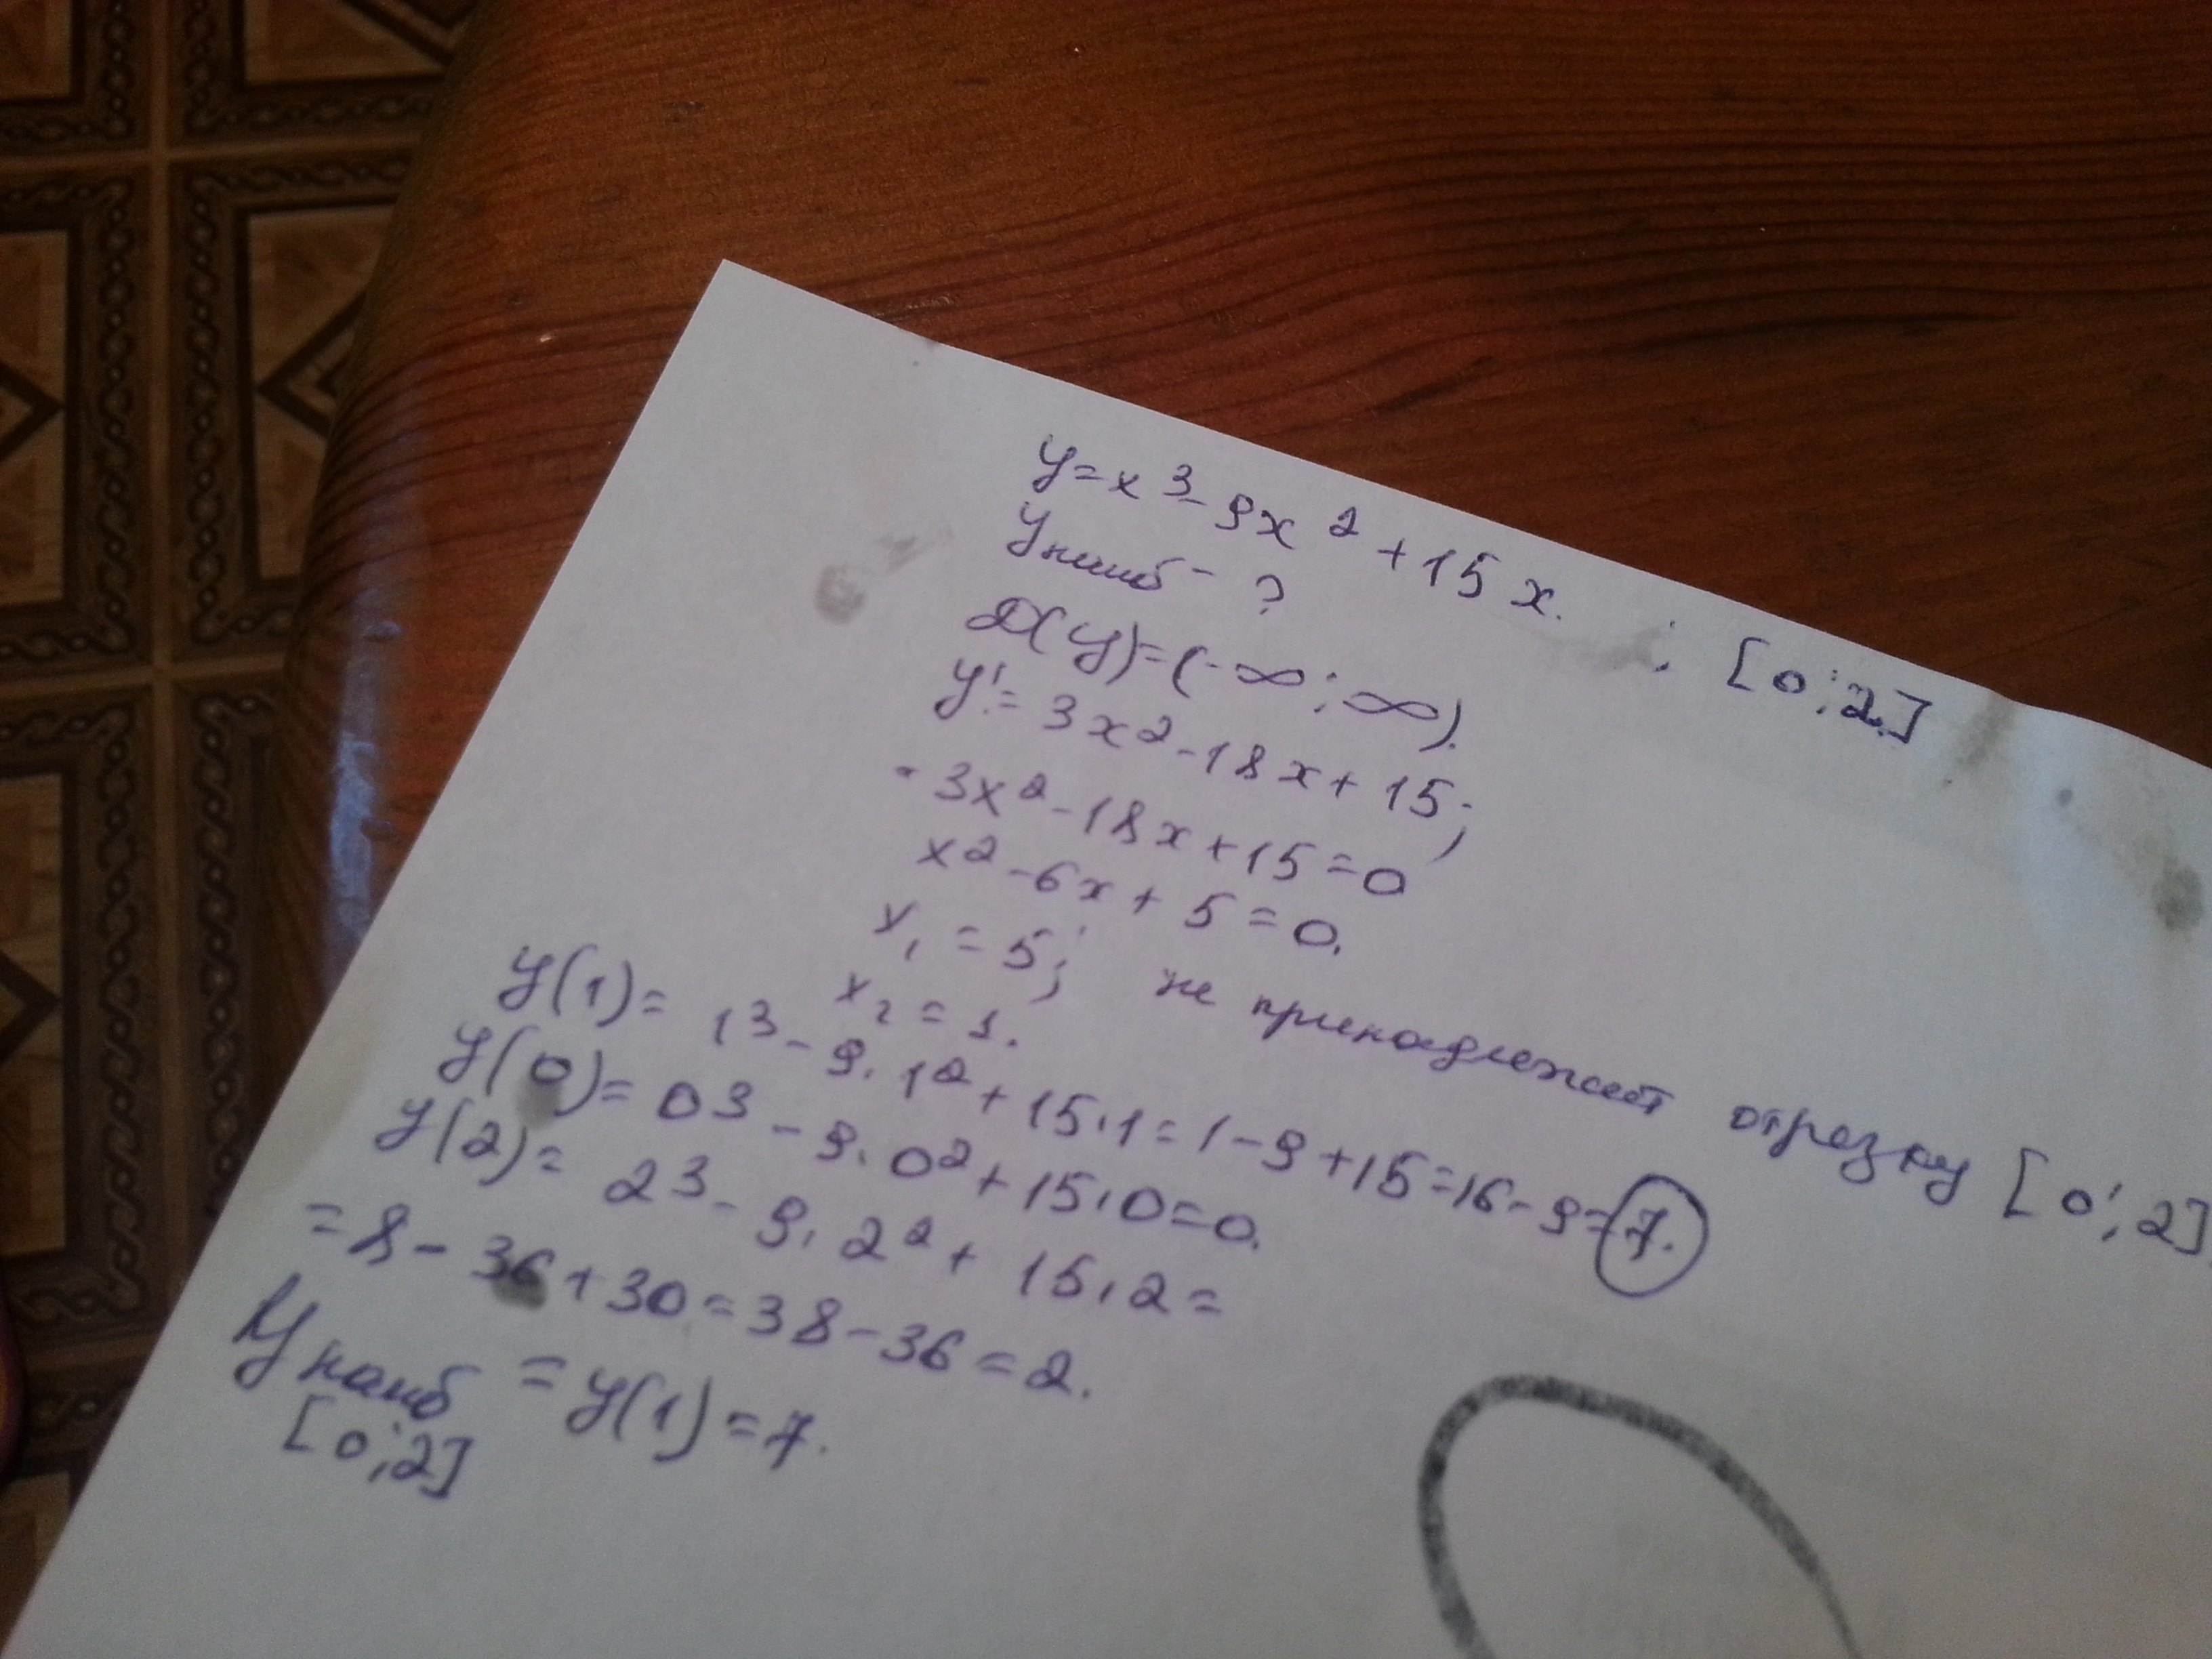 y=x³-9x²+15x. ; [0;2.]
yнаиб - ?
D(y)=(-∞;∞).
y'= 3x²-18x+15;
- 3x²-18x+15=0
x²-6x+5=0.
x₁=5; не принадлежит отрезку [0;2].
x₂=1.
y(1)= 1³-9·1²+15·1=1-9+15=16-9=7.
y(0)= 0³-9·0²+15·0=0.
y(2)= 2³-9·2²+15·2=
=8-36+30=38-36=2.
yнаиб =y(1)=7.
[0;2]